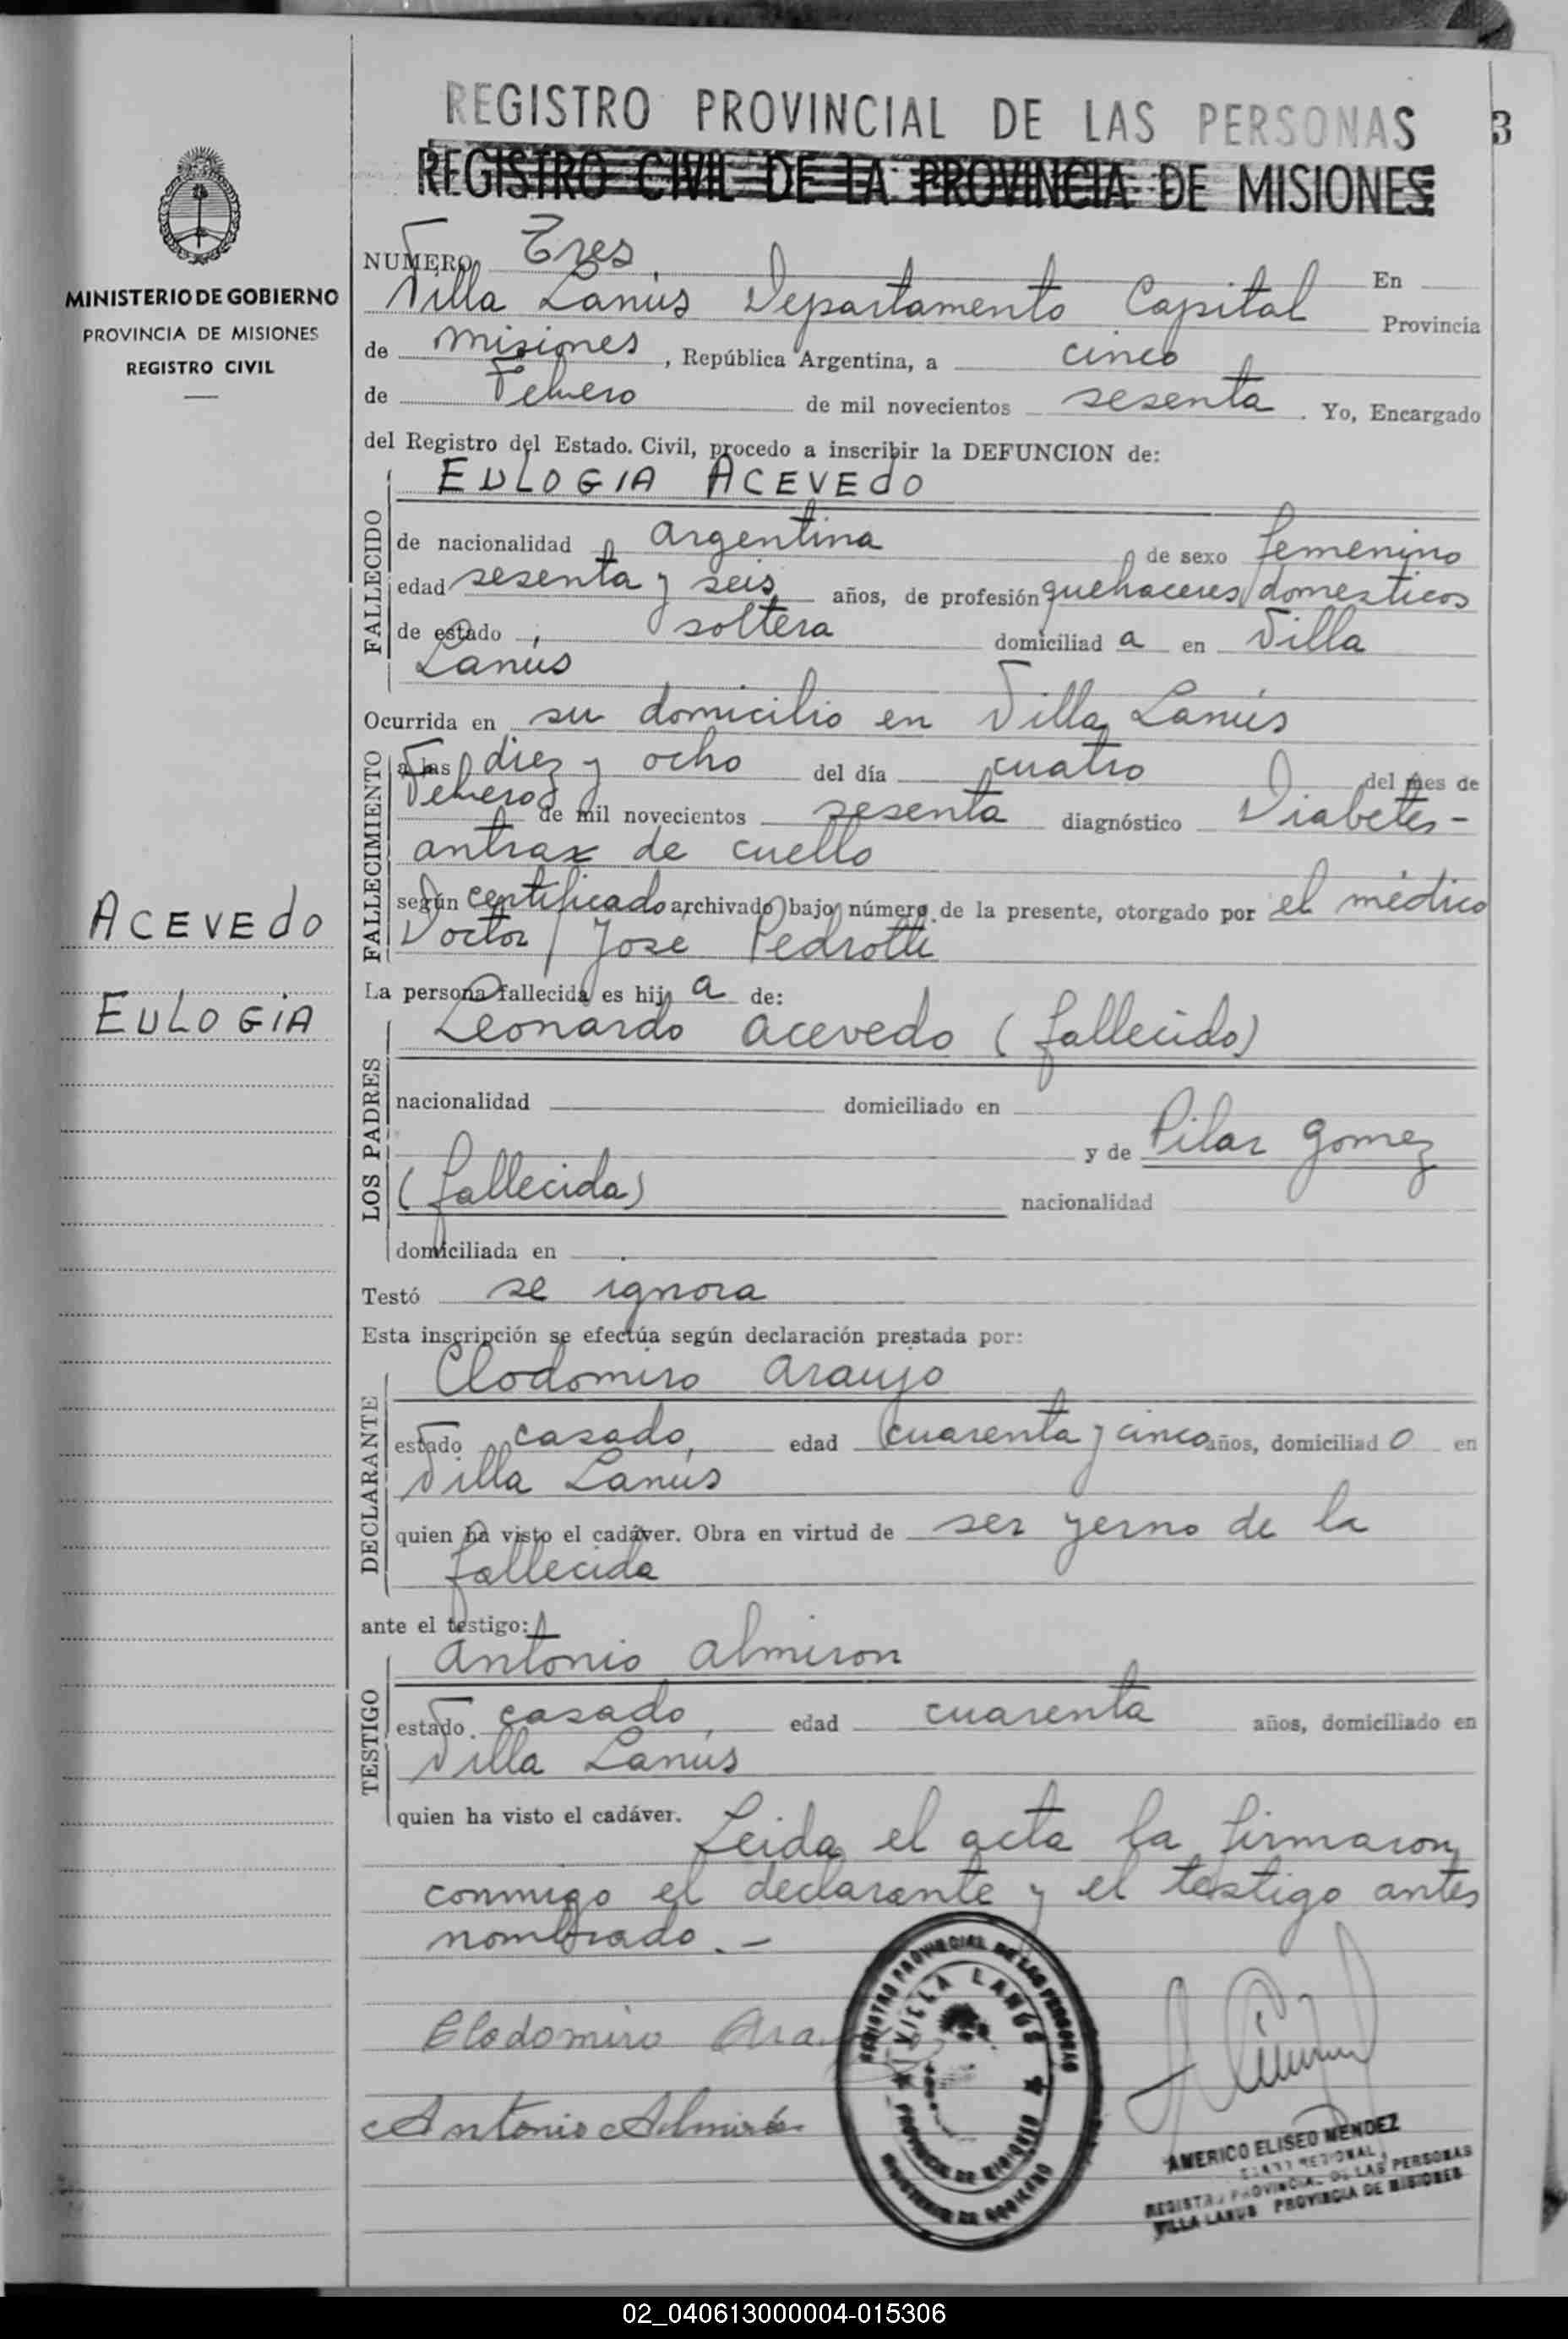 REGISTRO PROVINCIAL DE LAS PERSONAS
3
REGISTRO CIVIL DE LA PROVINCIA DE MISIONES
MINISTERIO DE GOBIERNO
PROVINCIA DE MISIONES
REGISTRO CIVIL
NUMERO Tres En
Villa Lanús Departamento Capital Provincia
de Misiones, República Argentina, a cinco
de Febrero de mil novecientos sesenta. Yo, Encargado
del Registro del Estado. Civil, procedo a inscribir la DEFUNCION de:
EULOGIA ACEVEdO
FALLECIDO
de nacionalidad Argentina de sexo femenino
edad sesenta y seis años, de profesión quehaceres domesticos
de estado soltera domiciliad a en Villa
Lanús
Ocurrida en su domicilio en Villa Lanús
FALLECIMIENTO
a las diez y ocho del día cuatro del mes de
Febrero de mil novecientos sesenta diagnóstico Diabetes -
antrax de cuello
según certificado archivado bajo número de la presente, otorgado por el médico
Doctor José Pedrotti
ACEVEdO
EULOGIA
La persona fallecida es hij a de:
Leonardo Acevedo (fallecido)
LOS PADRES
nacionalidad domiciliado en
y de Pilar Gomez
(fallecida) nacionalidad
domiciliada en
Testó se ignora
Esta inscripción se efectúa según declaración prestada por:
Clodomiro Araujo
DECLARANTE
estado casado, edad cuarenta y cinco años, domiciliad o en
Villa Lanús
quien ha visto el cadáver. Obra en virtud de ser yerno de la
fallecida
ante el testigo:
Antonio Almiron
TESTIGO
estado casado, edad cuarenta años, domiciliado en
Villa Lanús
quien ha visto el cadáver. Leida el acta la firmaron
conmigo el declarante y el testigo antes
nombrado. -
Clodomiro Ara
Antonio Almirón
REGISTRO PROVINCIAL DE LAS PERSONAS
VILLA LANÚS
PROVINCIA DE MISIONES
MINISTERIO DE GOBIERNO
AMERICO ELISEO MENDEZ
REGISTRO PROVINCIAL DE LAS PERSONAS
VILLA LANUS PROVINCIA DE MISIONES
02_040613000004-015306